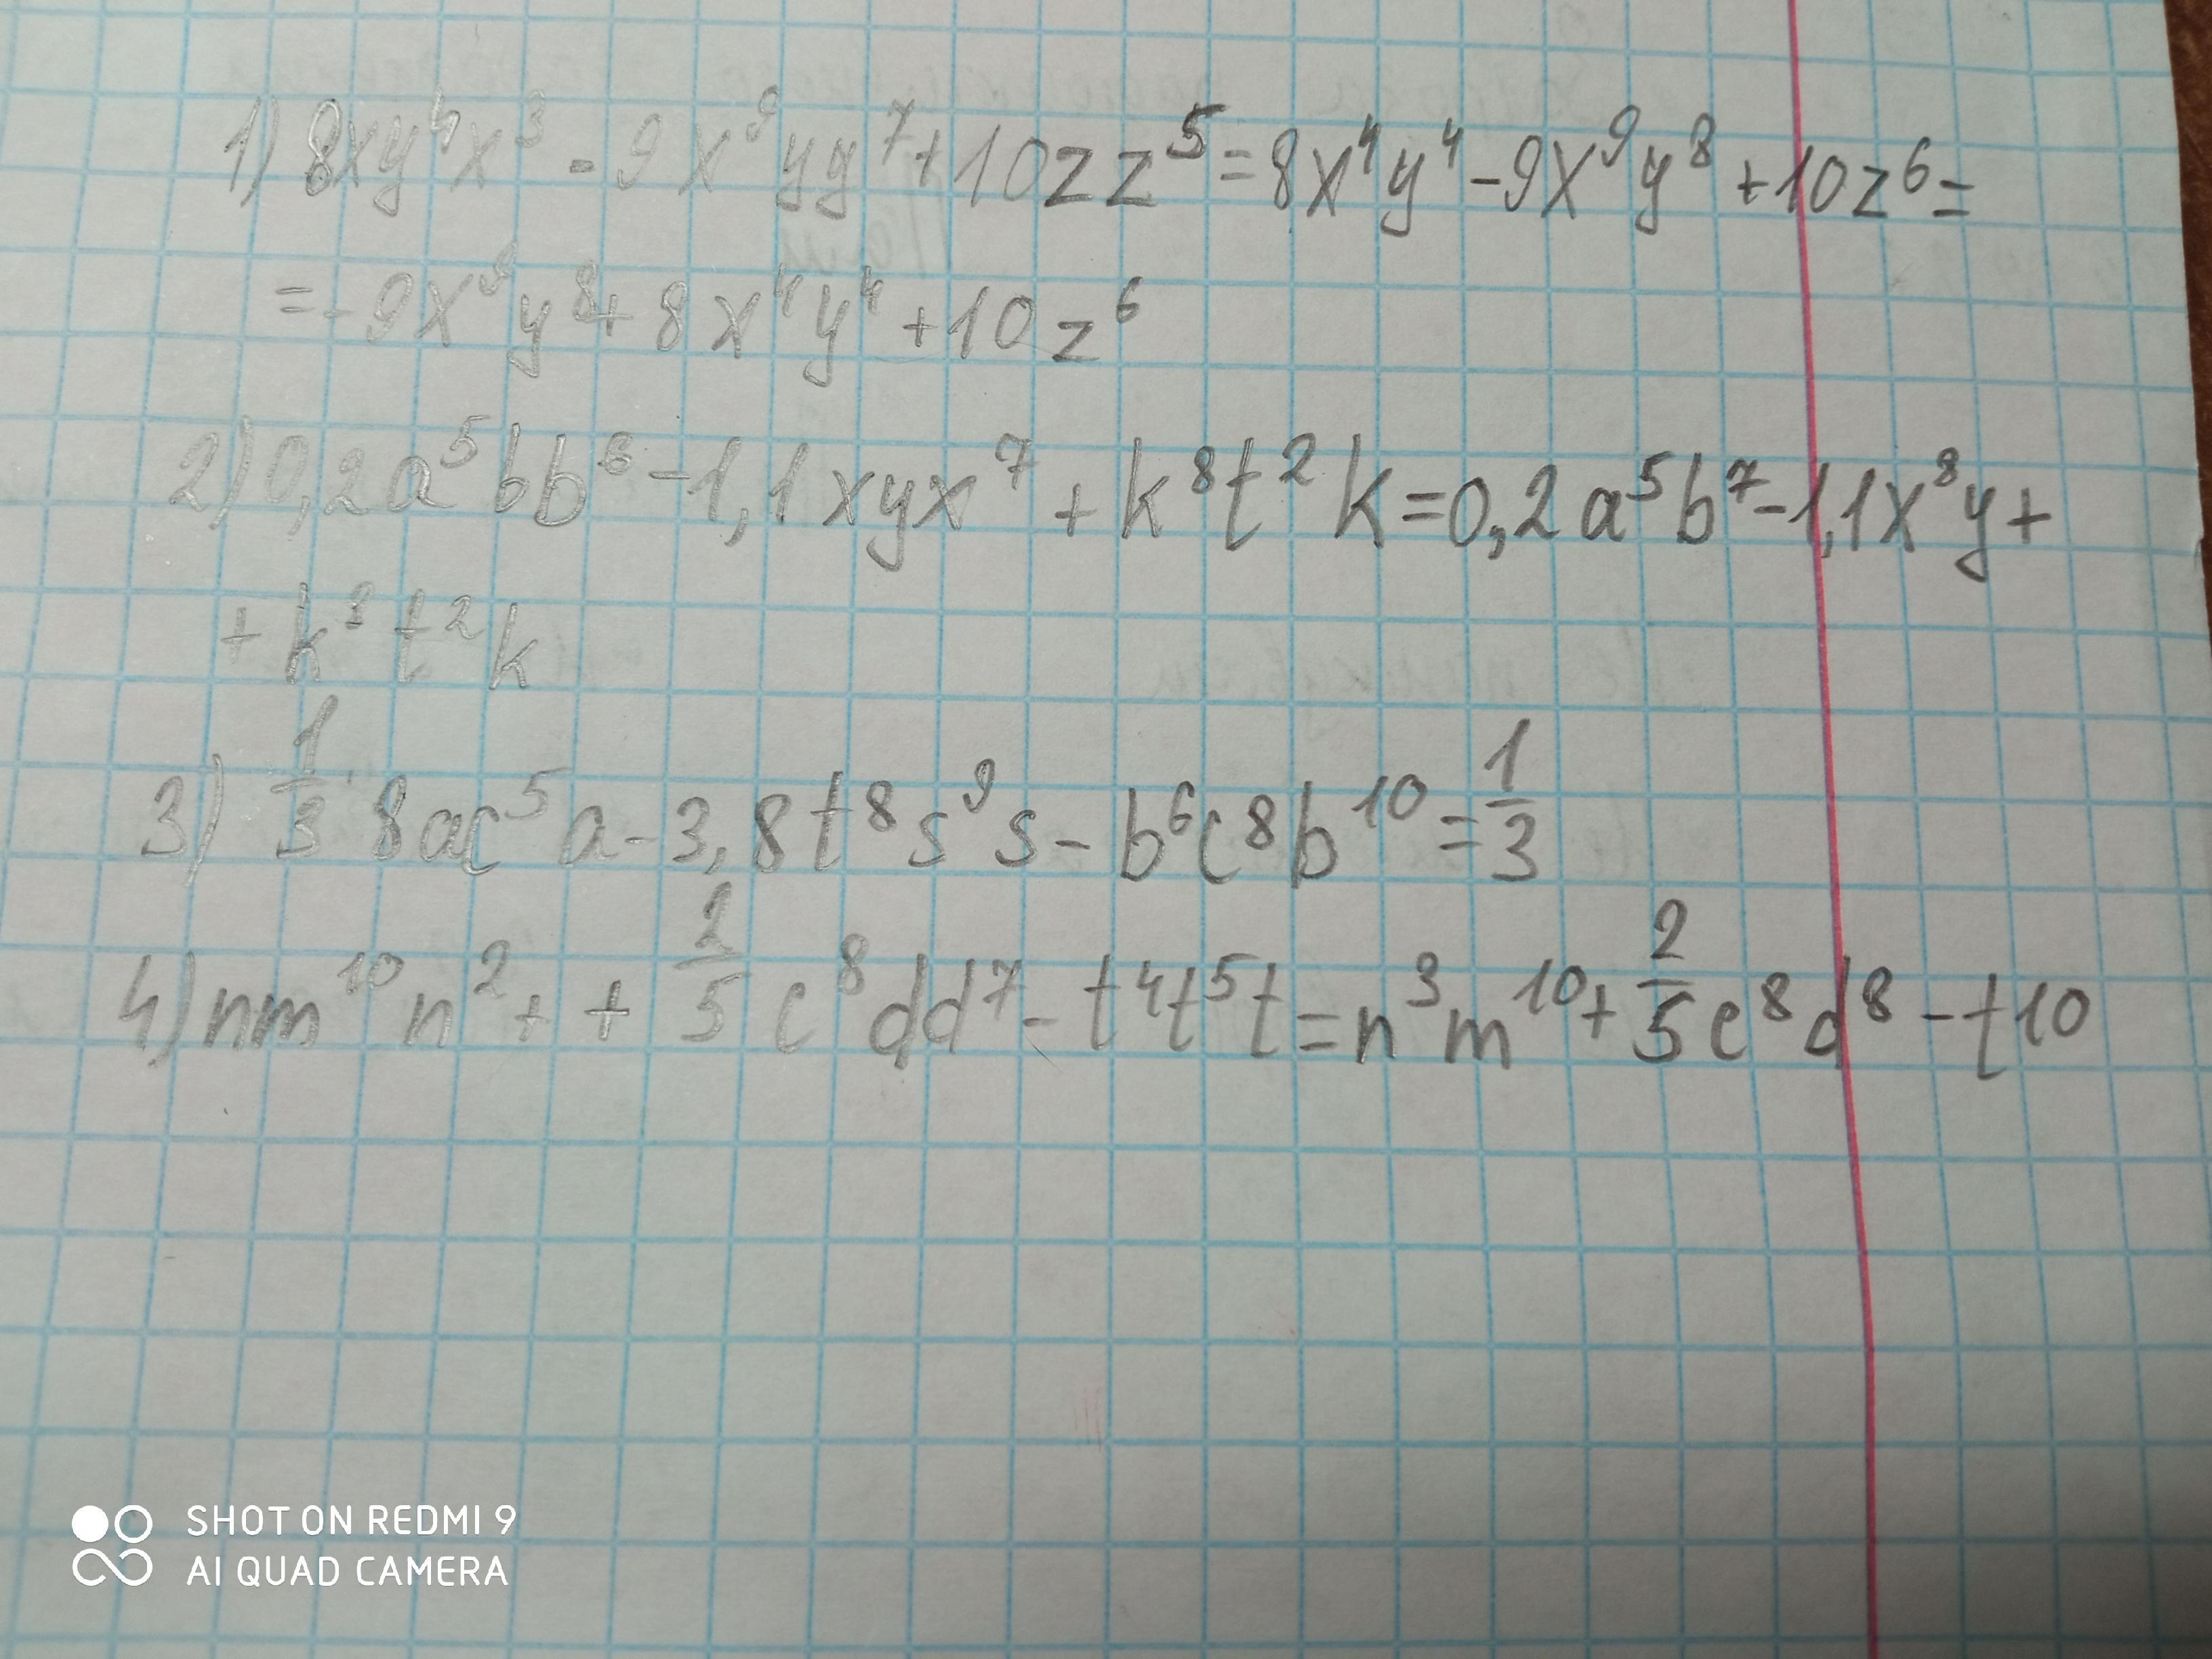 1) 8xy⁴x³ - 9x⁹yy⁷ + 10zz⁵ = 8x⁴y⁴ - 9x⁹y⁸ + 10z⁶ =
= -9x⁹y⁸ + 8x⁴y⁴ + 10z⁶
2) 0,2a⁵bb⁶ - 1,1xyx⁷ + k⁸t²k = 0,2a⁵b⁷ - 1,1x⁸y +
+ k⁸t²k
3) 1/3 · 8ac⁵a - 3,8t⁸s⁹s - b⁶c⁸b¹⁰ = 1/3
4) nm¹⁰n² + + 2/5 c⁸dd⁷ - t⁴t⁵t = n³m¹⁰ + 2/5 c⁸d⁸ - t10
SHOT ON REDMI 9
AI QUAD CAMERA